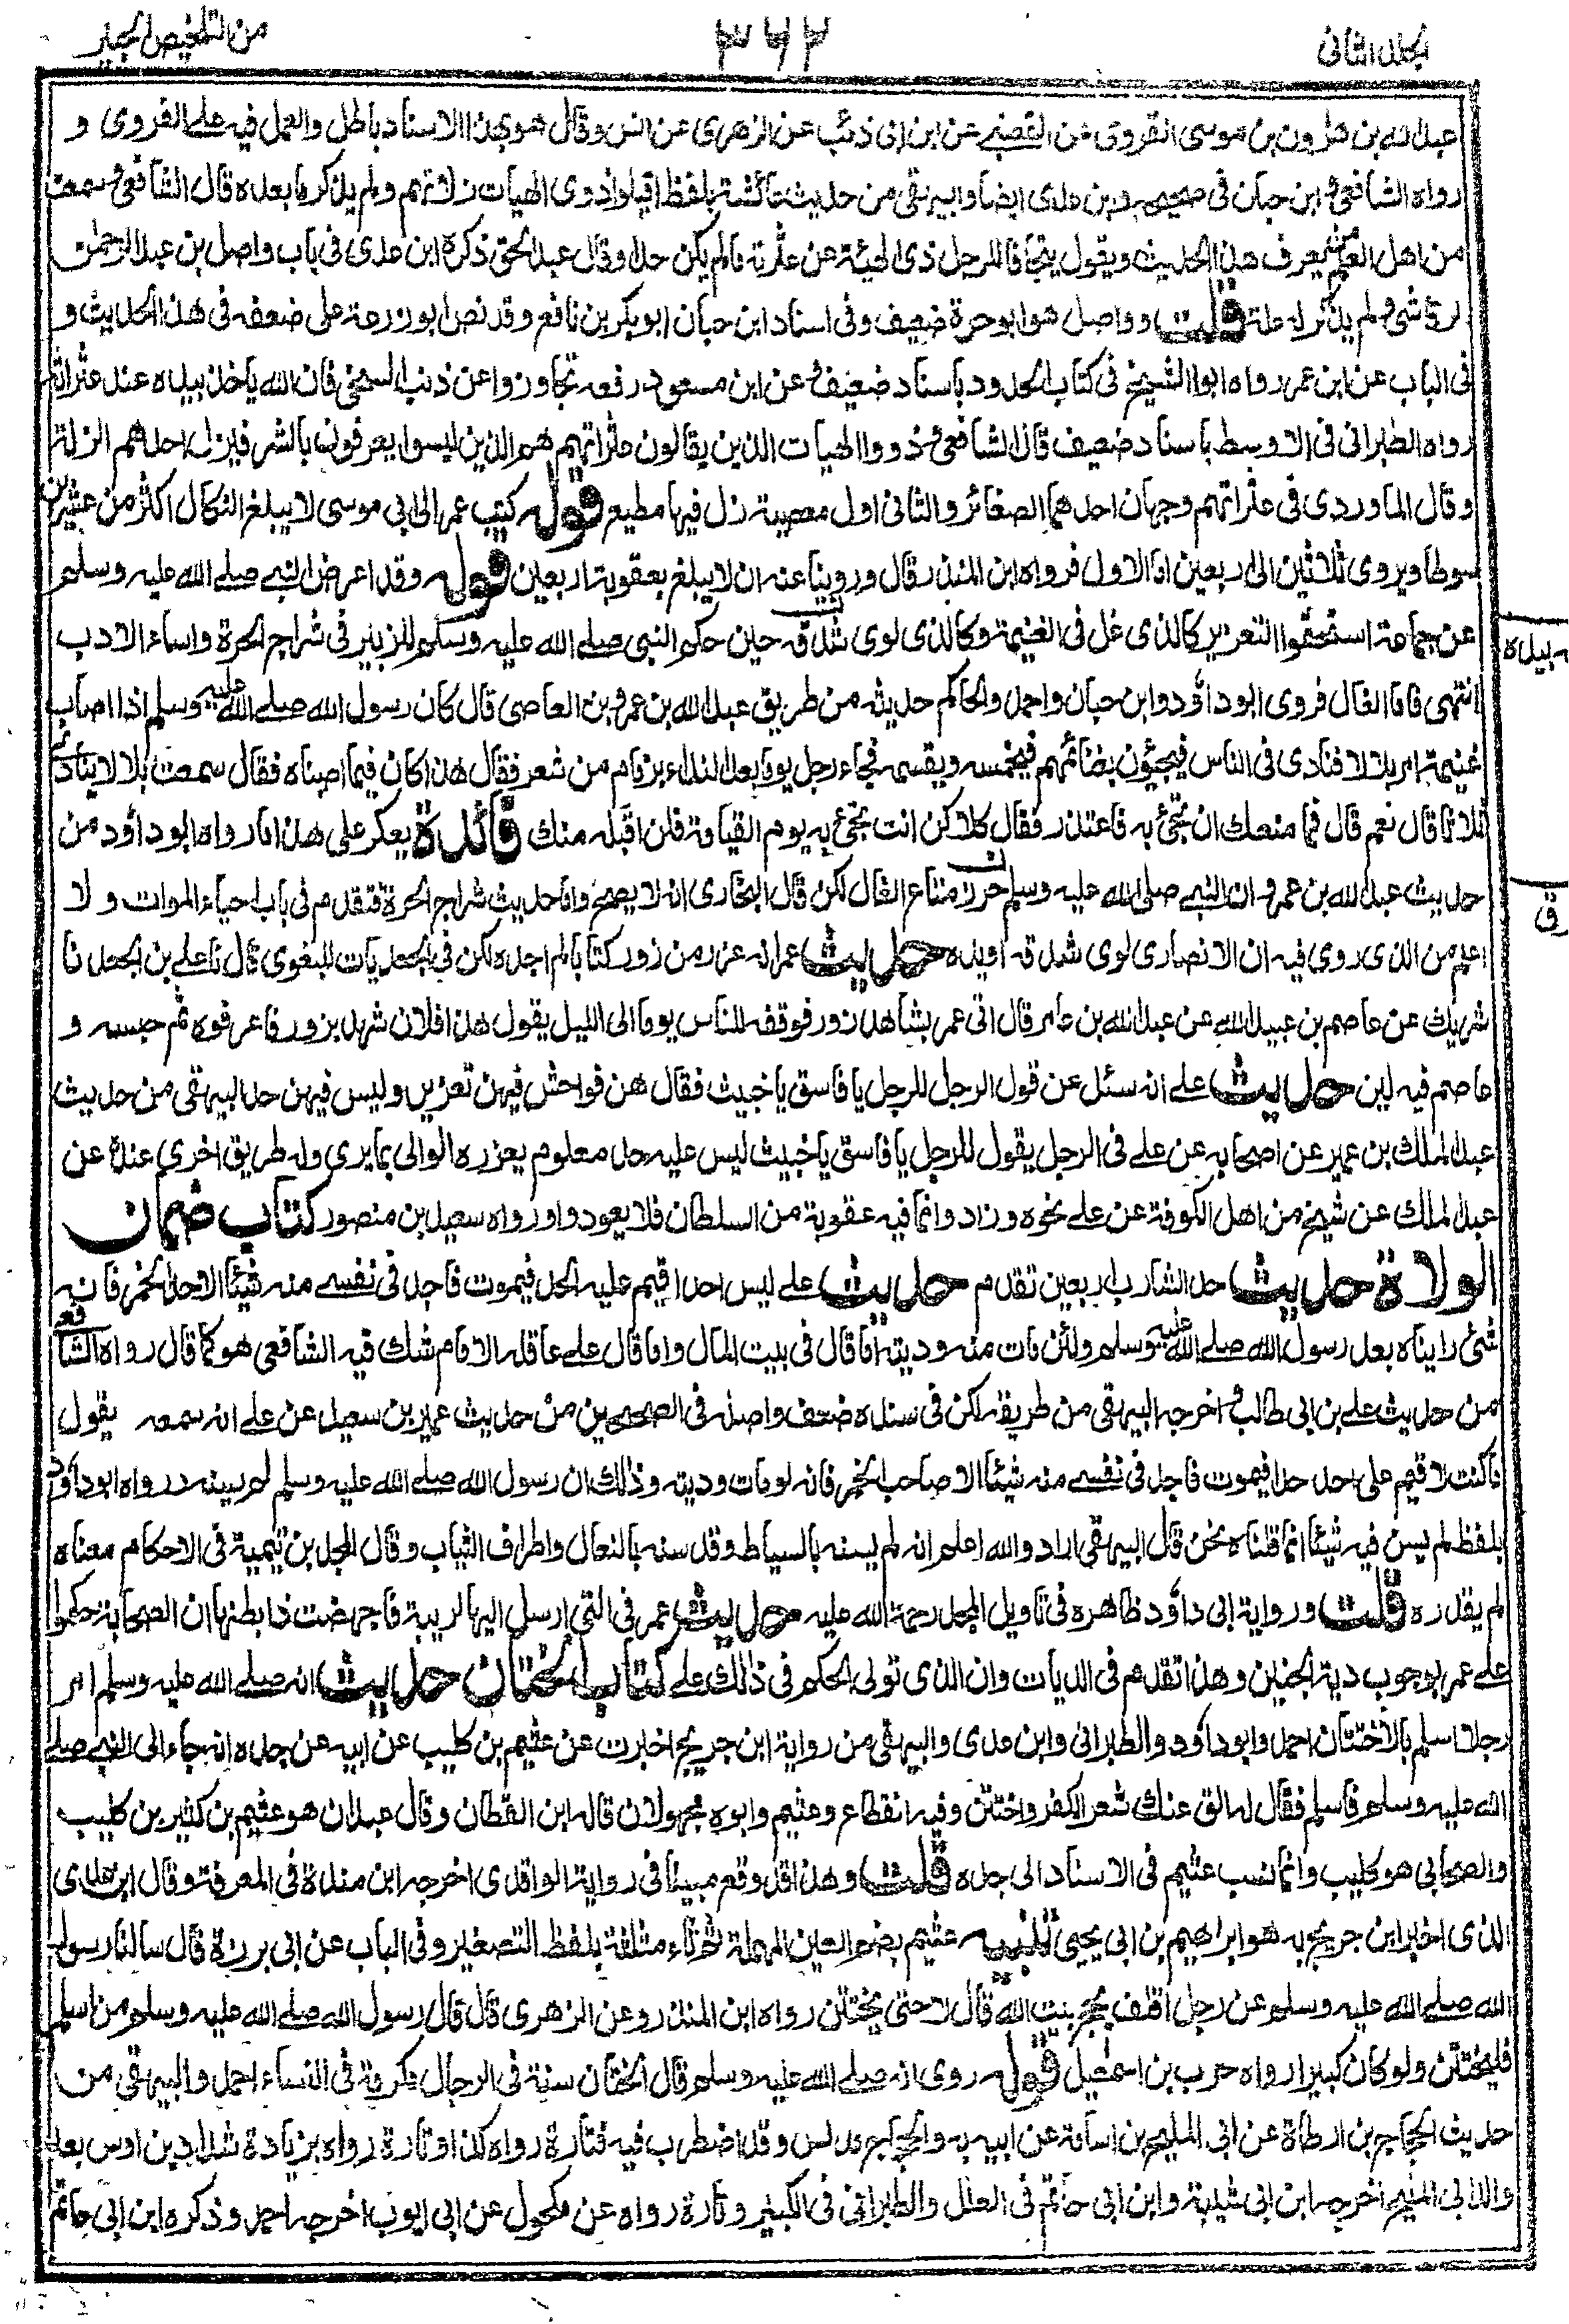 المجلد الثانى
٣٦٢
من التلخيص الحبير
عبد الله بن هارون بن موسى الفروى عن القعنبى عن ابن ابى ذئب عن الزهرى عن انس وقال هو بهذا الاسناد باطل والعمل فيه على الفروى و
رواه الشافعى وابن حبان فى صحيحه وابن عدى ايضا والبيهقى من حديث عائشة بلفظ اقيلوا ذوى الهيات زلاتهم ولم يذكر ما بعده قال الشافعى وسمعت
من اهل العلم من يعرف هذا الحديث ويقول يتجافا للرجل ذى الهيئة عن عثرته مالم يكن حدا وقال عبد الحق ذكره ابن عدى فى باب واصل بن عبد الرحمن
الرقاشى ولم يذكر له علة قلت وواصل هو ابو حرة ضعيف وفى اسناد ابن حبان ابو بكر بن نافع وقد نص ابو زرعة على ضعفه فى هذا الحديث و
فى الباب عن ابن عمر رواه ابو الشيخ فى كتاب الحدود باسناد ضعيف وعن ابن مسعود رفعه تجاوزوا عن ذنب السخى فان الله ياخذ بيده عند عثراته
رواه الطبرانى فى الاوسط باسناد ضعيف قال الشافعى وذووا الهيات الذين يقالون عثراتهم هم الذين ليسوا يعرفون بالشر فيزل احدهم الزلة
وقال الماوردى فى عثراتهم وجهان احدهما الصغائر والثانى اول معصية زل فيها مطيع قوله كتب عمر الى ابى موسى لا يبلغ النكال اكثر من عشرين
سوطا ويروى ثلاثين الى اربعين اما الاول فرواه ابن المنذر قال وروينا عنه ان لا يبلغ بعقوبة اربعين قوله وقد اعرض النبى صلے الله عليه وسلم
عن جماعة استحقوا التعزير كالذى غل فى الغنيمة وكالذى لوى شدقه حين حكم النبى صلے الله عليه وسلم للزبير فى شراج الحرة واساء الادب
انتهى فاما الغال فروى ابو داؤد وابن حبان واحمد والحاكم حديثه من طريق عبد الله بن عمرو بن العاصى قال كان رسول الله صلے الله عليه وسلم اذا اصاب
غنيمة امر بلالا فنادى فى الناس فيجيؤن بغنائمهم فيخمسه ويقسمه فجاء رجل يوما بعد النداء بزمام من شعر فقال هذا كان فيما اصبناه فقال سمعت بلالا ينادى
ثلاثا قال نعم قال فما منعك ان تجئ به فاعتذر فقال كلا كن انت تجئ به يوم القيامة فلن اقبله منك فائدة يعكر على هذا ما رواه ابو داؤد من
حديث عبد الله بن عمرو ان النبى صلى الله عليه وسلم حرق متاع الغال لكن قال البخارى انه لا يصح واما حديث شراج الحرة فتقدم فى باب احياء الموات ولا
اعلم من الذى روى فيه ان الانصارى لوى شدقه او يده حديث عمر انه عزر من زور كتابا لم اجده لكن فى الجعديات للبغوى قال نا على بن الجعد نا
شريك عن عاصم بن عبيد الله عن عبد الله بن عامر قال اتى عمر بشاهد زور فوقفه للناس يوما الى الليل يقول هذا فلان شهد بزور فاعرفوه ثم حبسه و
عاصم فيه لين حديث على انه سئل عن قول الرجل للرجل يا فاسق يا خبيث فقال هن فواحش فيهن تعزير وليس فيهن حد البيهقى من حديث
عبد الملك بن عمير عن اصحابه عن على فى الرجل يقول للرجل يا فاسق يا خبيث ليس عليه حد معلوم يعزره الوالى بما يرى وله طريق اخرى عنده عن
عبد الملك عن شيخ من اهل الكوفة عن على نحوه وزاد وانما فيه عقوبة من السلطان فلا يعودوا ورواه سعيد بن منصور كتاب ضمان
الولاة حديث حد الشارب اربعين تقدم حديث على ليس احد اقيم عليه الحد فيموت فاجد فى نفسى منه شيئا الا حد الخمر فانه
شئ رايناه بعد رسول الله صلے الله عليه وسلم ولئن مات منه وديته اما قال فى بيت المال واما قال على عاقلة الامام شك فيه الشافعى هو كما قال رواه الشافعى
من حديث على بن ابى طالب واخرجه البيهقى من طريقه لكن فى سنده ضعف واصله فى الصحيحين من حديث عمير بن سعيد عن على انه سمعه يقول
ما كنت لاقيم على احد حدا فيموت فاجد فى نفسى منه شيئا الا صاحب الخمر فانه لو مات وديته وذلك ان رسول الله صلے الله عليه وسلم لم يسنه رواه ابو داؤد
بلفظ لم يسن فيه شيئا انما قلناه نحن قال البيهقى اراد والله اعلم انه لم يسنه بالسياط وقد سنه بالنعال واطراف الثياب وقال المجد بن تيمية فى الاحكام معناه
لم يقدره قلت ورواية ابى داؤد ظاهره فى تاويل المجد رحمة الله عليه حديث عمر فى التى ارسل اليها لريبة فاجهضت ذا بطنها ان الصحابة حكموا
على عمر بوجوب دية الجنين وهذا تقدم فى الديات وان الذى تولى الحكم فى ذلك على كتاب الختان حديث انه صلے الله عليه وسلم امر
رجلا اسلم بالاختتان احمد وابو داؤد والطبرانى وابن عدى والبيهقى من رواية ابن جريج اخبرت عن عثيم بن كليب عن ابيه عن جده انه جاء الى النبى صلے
الله عليه وسلم فاسلم فقال له الق عنك شعر الكفر واختتن وفيه انقطاع وعثيم وابوه مجهولان قاله ابن القطان وقال عبدان هو عثيم بن كثير بن كليب
والصحابى هو كليب وانما نسب عثيم فى الاسناد الى جده قلت وهذا قد وقع مبينا فى رواية الواقدى اخرجه ابن مندة فى المعرفة وقال ابن عدى
الذى اخبر ابن جريج به هو ابراهيم بن ابى يحيى تنبيه عثيم بضم العين المهملة ثم ثاء مثلثة بلفظ التصغير وفى الباب عن ابى برزة قال سالنا رسول
الله صلے الله عليه وسلم عن رجل اقلف يحج بيت الله قال لا حتى يختتن رواه ابن المنذر وعن الزهرى قال قال رسول الله صلے الله عليه وسلم من اسلم
فليختتن ولو كان كبيرا رواه حرب بن اسمعيل قوله روى انه صلے الله عليه وسلم قال الختان سنة فى الرجال مكرمة فى النساء احمد والبيهقى من
حديث الحجاج بن ارطاة عن ابى المليح بن اسامة عن ابيه به والحجاج مدلس وقد اضطرب فيه فتارة رواه كذا وتارة رواه بزيادة شداد بن اوس بعد
والد ابى المليح اخرجه ابن ابى شيبة وابن ابى حاتم فى العلل والطبرانى فى الكبير وتارة رواه عن مكحول عن ابى ايوب اخرجه احمد وذكره ابن ابى حاتم
بيده
ق